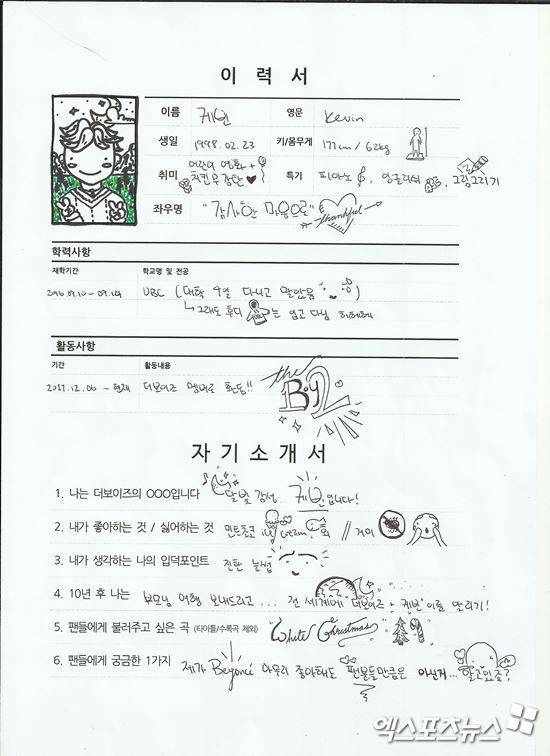 이 력 서
이름 케빈 영문 Kevin
생일 1998. 02. 23 키/몸무게 177cm / 62kg
취미 특기 피아노, 잉글리쉬, 그림그리기
좌우명 "감사한 마음으로" thankful
학력사항
재학기간 학교명 및 전공
UBC (대학 4일 다니고 말았음)
그래도 후디는 입고 다님 히히히
활동사항
기간 활동내용
2017.12.06 ~ 현재 더보이즈 멤버로 활동!! the BoyZ
자 기 소 개 서
1. 나는 더보이즈의 OOO입니다 달빛 감성... 케빈입니다!
2. 내가 좋아하는 것 / 싫어하는 것 민트초코 ice cream 회 // 거미
3. 내가 생각하는 나의 입덕포인트 진한 눈썹
4. 10년 후 나는 부모님 여행 보내드리고... 전 세계에 더보이즈 + 케빈 이름 알리기!
5. 팬들에게 불러주고 싶은 곡 (타이틀/수록곡 제외) "White Christmas"
6. 팬들에게 궁금한 1가지 제가 Beyoncé 아무리 좋아해도 팬분들만큼은 아닌거... 알고있죠?
엑스포츠뉴스